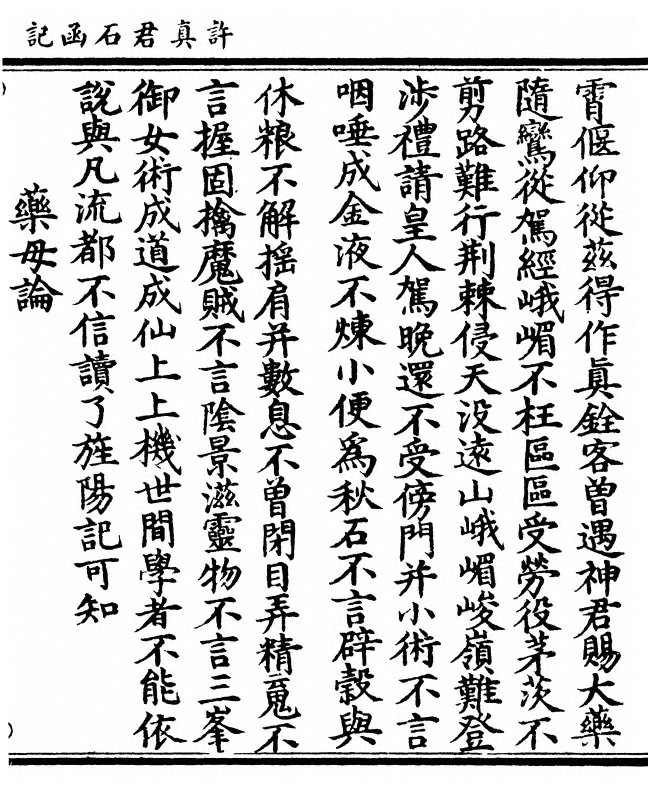 許真君石函記
霄偃仰從茲得作眞銓客曾遇神君賜大藥
隨鸞從駕經峨嵋不枉區區受勞役茅茨不
剪路難行荆棘侵天没遠山峨嵋峻嶺難登
涉禮請皇人駕晚還不受傍門并小術不言
咽唾成金液不煉小便爲秋石不言辟穀與
休粮不解摇肩并數息不曾閉目弄精䰟不
言握固擒魔賊不言陰景滋靈物不言三峯
御女術成道成仙上上機世間學者不能依
説與凡流都不信讀了旌陽記可知
藥母論